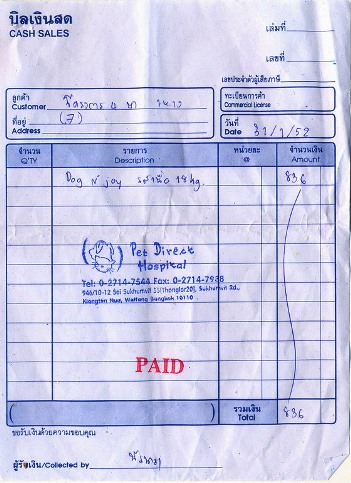 บิลเงินสด
CASH SALES
เล่มที่
เลขที่
เลขประจำตัวผู้เสียภาษี
ลูกค้า
Customer
ที่อยู่ (7)
Address
ทะเบียนการค้า
Commercial License
วันที่
Date 31/1/52
จำนวน รายการ หน่วยละ จำนวนเงิน
Q'TY Description @ Amount
Dog N' joy 15 kg. 836
Pet Direct
Hospital
Tel: 0-2714-7544 Fax: 0-2714-7938
946/10-12 Soi Sukhumvit 55(Thonglor20), Sukhumvit Rd.,
Klongton Nua, Wattana Bangkok 10110
PAID
( ) รวมเงิน 836
Total
ขอรับเงินด้วยความขอบคุณ
ผู้รับเงิน/Collected by